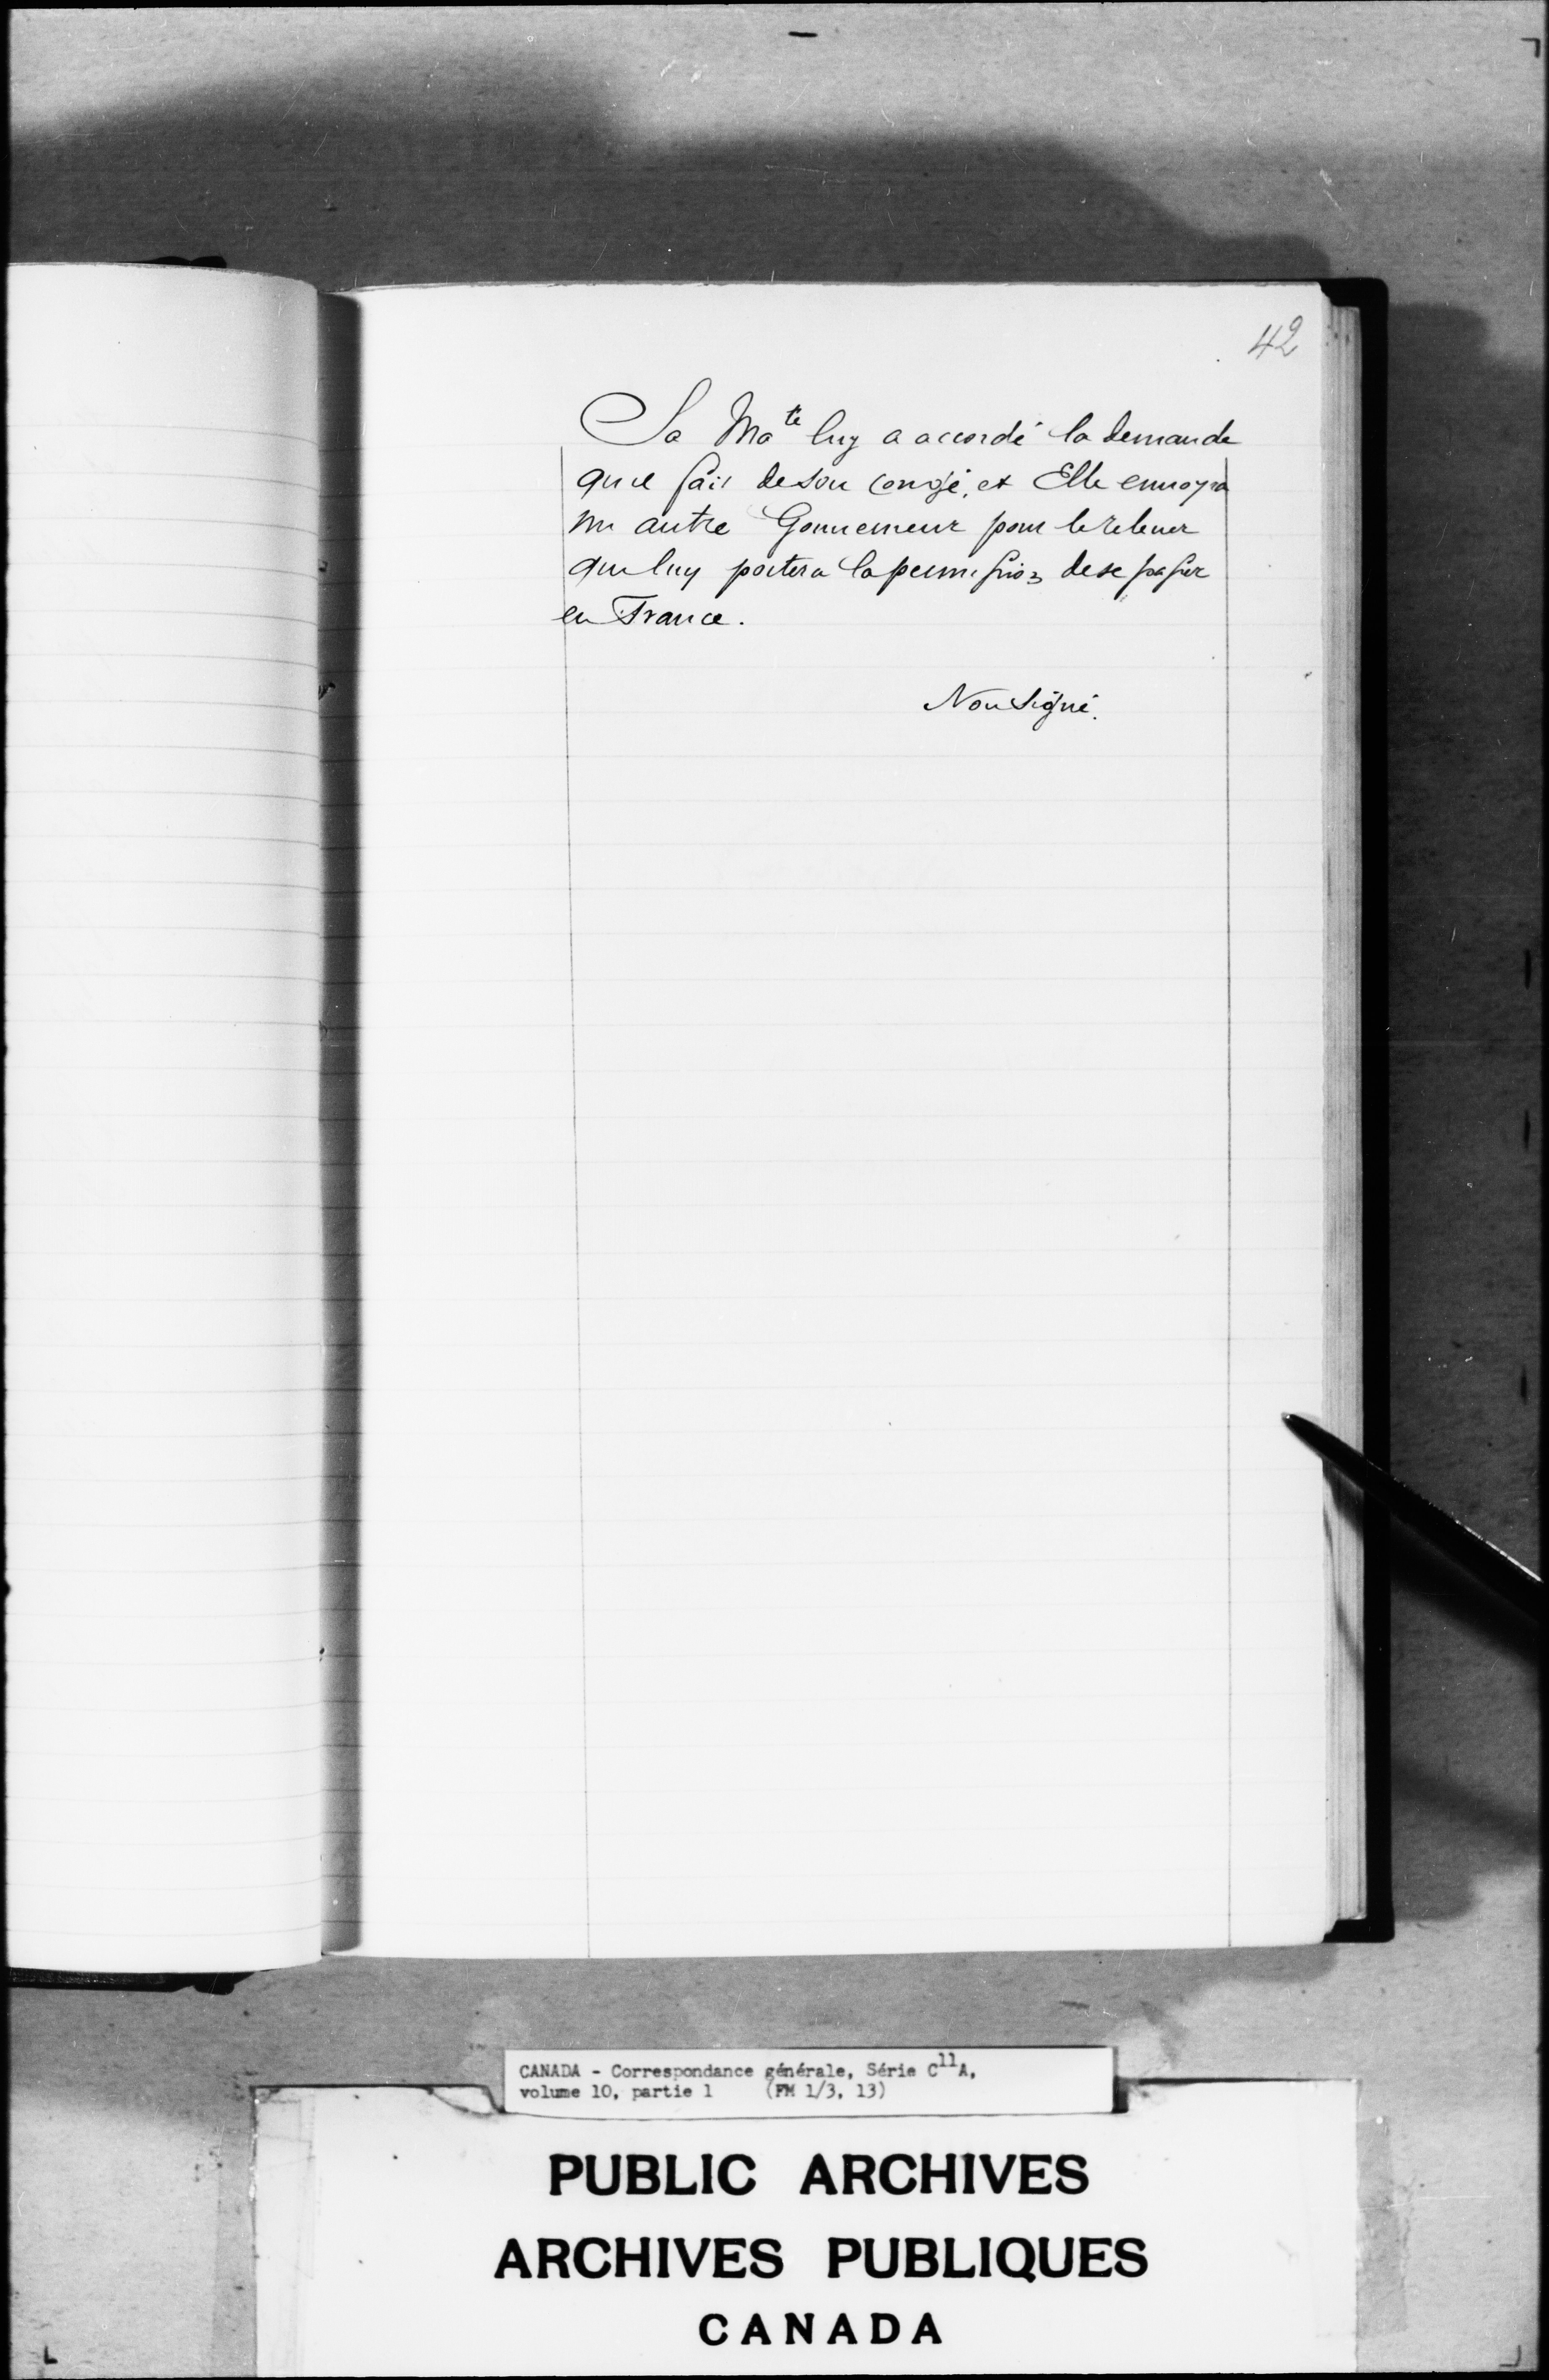 42
Sa Ma^té luy a accordé la demande
qu'il fait de son congé, et Elle enuoyra
un autre Gouuerneur pour le releuer
qui luy portera la permission de se passer
en France.
Non signé.
CANADA - Correspondance générale, Série C^11 A,
volume 10, partie 1 (FM 1/3, 13)
PUBLIC ARCHIVES
ARCHIVES PUBLIQUES
CANADA